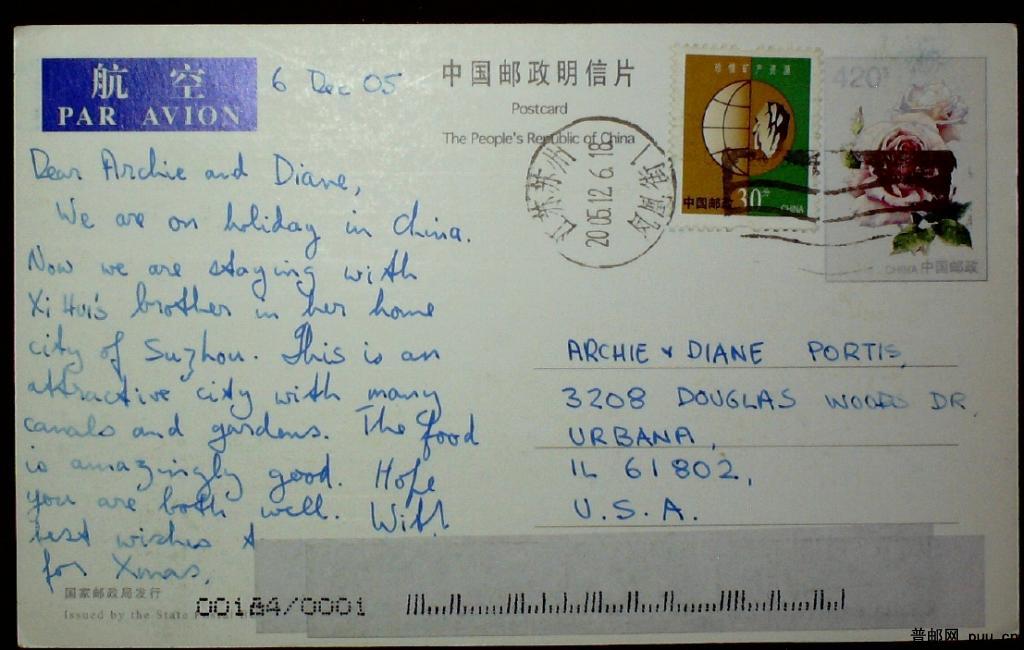 航 空
PAR AVION
6 Dec 05
中国邮政明信片
Postcard
The People's Republic of China
Dear Archie and Diane,
We are on holiday in China.
Now we are staying with
Xi Hui's brother in her home
city of Suzhou. This is an
attractive city with many
canals and gardens. The food
is amazingly good. Hope
you are both well. With
best wishes
for Xmas,
江苏苏州
2005.12.6.18
凤凰街
珍惜矿产资源
中国邮政 30分
CHINA
420分
CHINA 中国邮政
ARCHIE & DIANE PORTIS,
3208 DOUGLAS WOODS DR,
URBANA,
IL 61802,
U.S.A.
国家邮政局发行
Issued by the State
/0001
普邮网 puu.cn